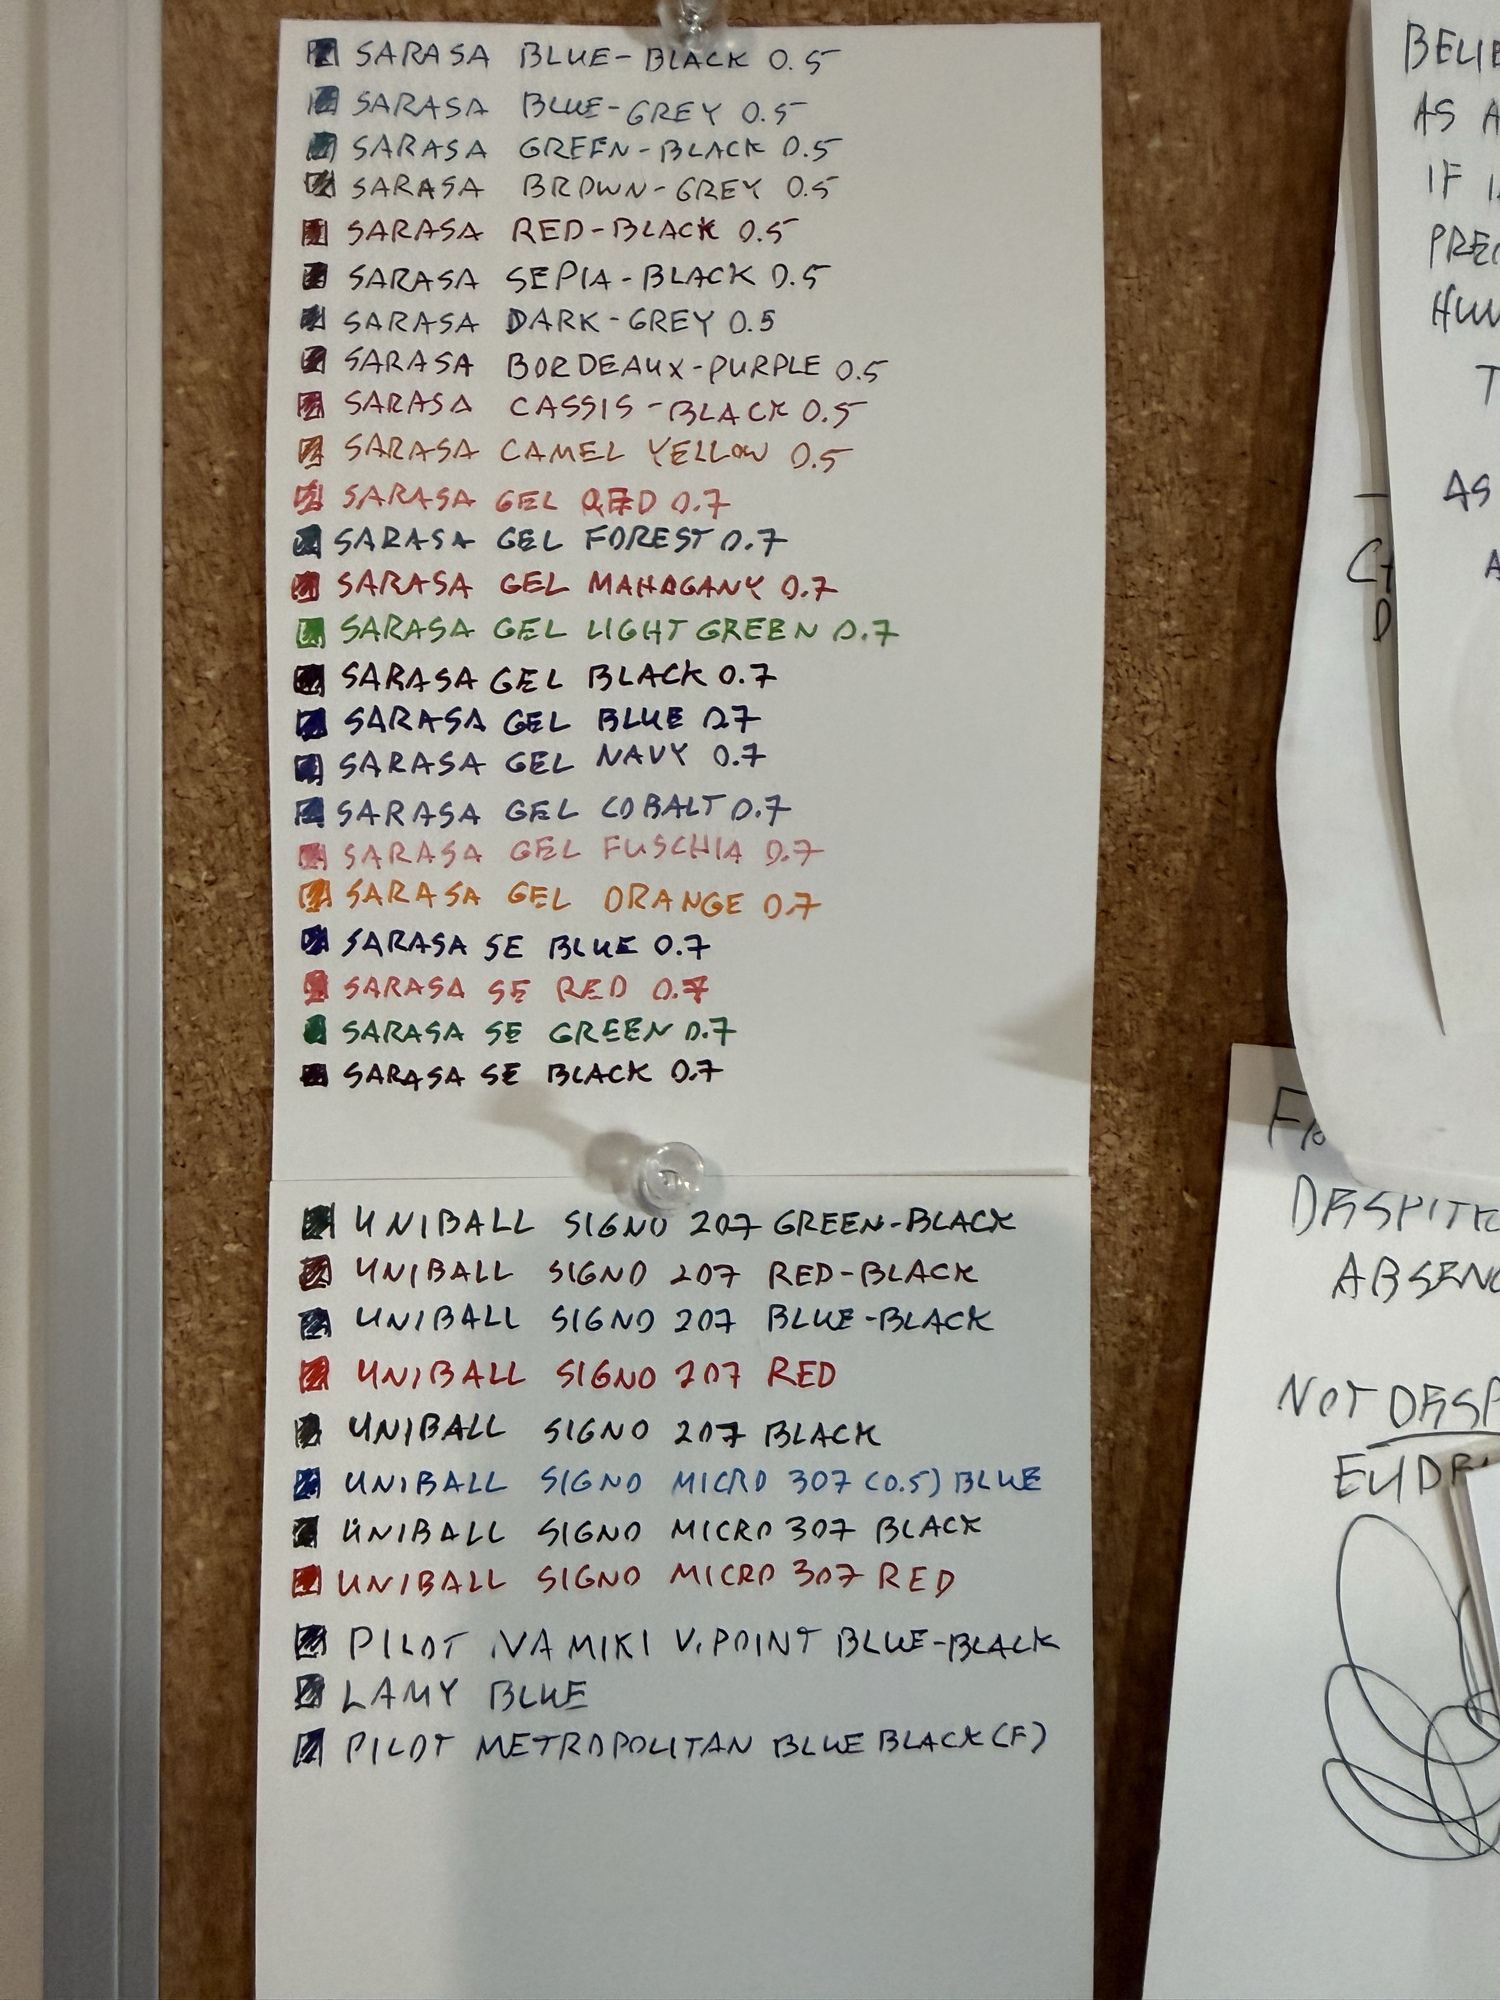 SARASA BLUE-BLACK 0.5
SARASA BLUE-GREY 0.5
SARASA GREEN-BLACK 0.5
SARASA BROWN-GREY 0.5
SARASA RED-BLACK 0.5
SARASA SEPIA-BLACK 0.5
SARASA DARK-GREY 0.5
SARASA BORDEAUX-PURPLE 0.5
SARASA CASSIS-BLACK 0.5
SARASA CAMEL YELLOW 0.5
SARASA GEL RED 0.7
SARASA GEL FOREST 0.7
SARASA GEL MAHAGANY 0.7
SARASA GEL LIGHT GREEN 0.7
SARASA GEL BLACK 0.7
SARASA GEL BLUE 0.7
SARASA GEL NAVY 0.7
SARASA GEL COBALT 0.7
SARASA GEL FUSCHIA 0.7
SARASA GEL ORANGE 0.7
SARASA SE BLUE 0.7
SARASA SE RED 0.7
SARASA SE GREEN 0.7
SARASA SE BLACK 0.7
UNIBALL SIGNO 207 GREEN-BLACK
UNIBALL SIGNO 207 RED-BLACK
UNIBALL SIGNO 207 BLUE-BLACK
UNIBALL SIGNO 207 RED
UNIBALL SIGNO 207 BLACK
UNIBALL SIGNO MICRO 307 (0.5) BLUE
UNIBALL SIGNO MICRO 307 BLACK
UNIBALL SIGNO MICRO 307 RED
PILOT NAMIKI V.POINT BLUE-BLACK
LAMY BLUE
PILOT METROPOLITAN BLUE BLACK (F)
AS A
IF
AS
NOT